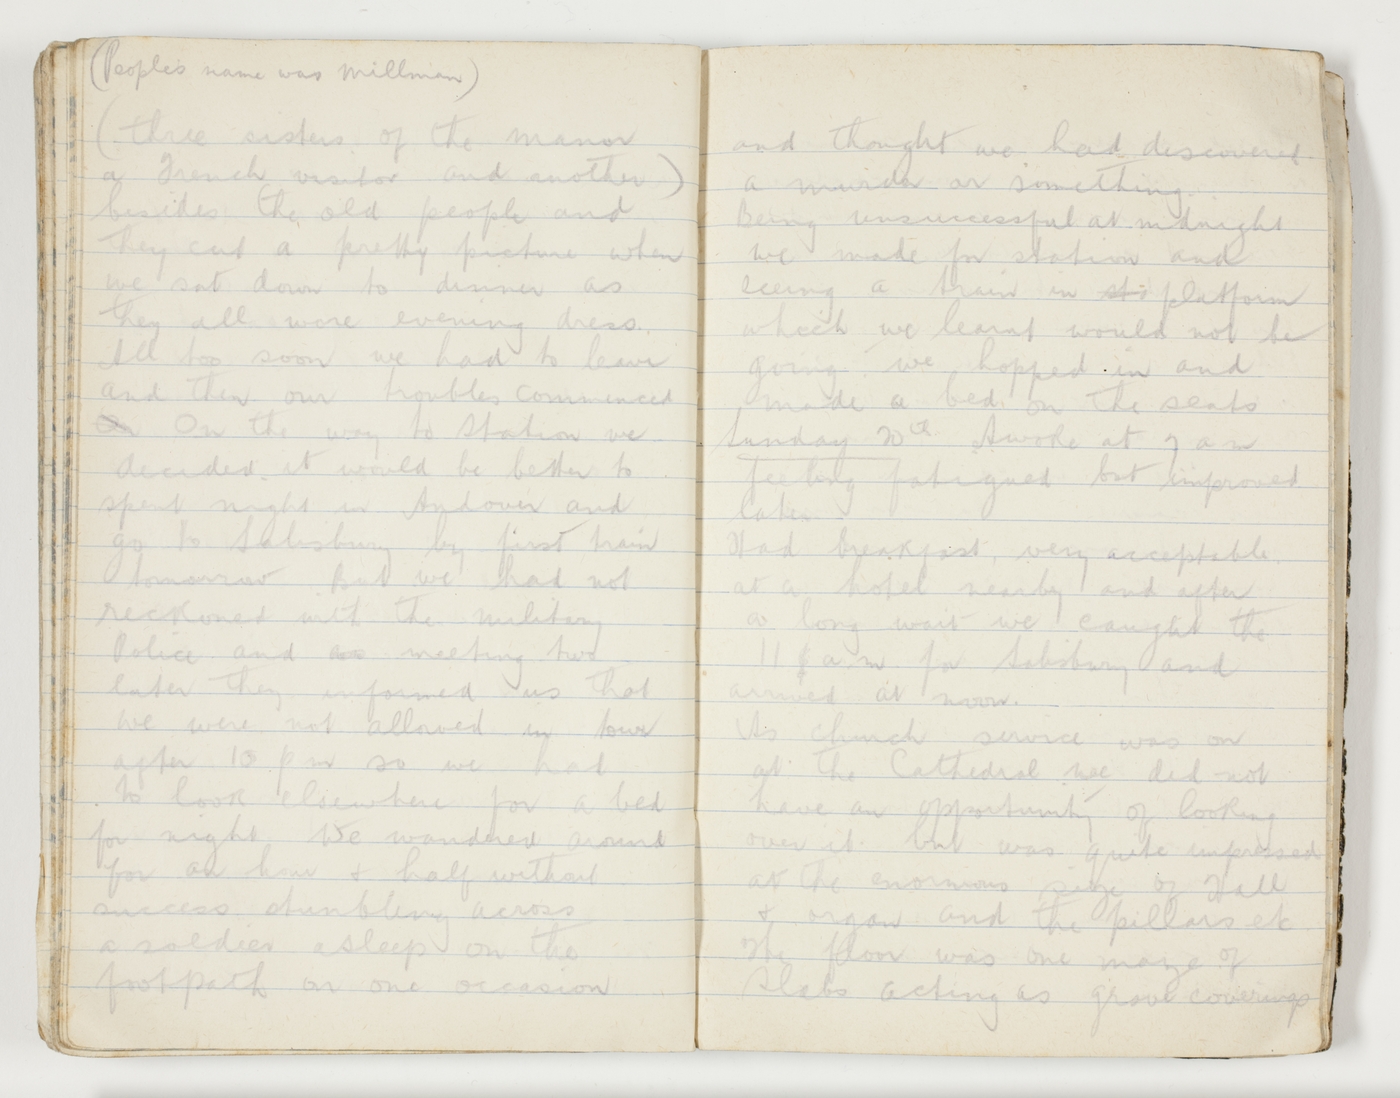 (People's name was Millman)
(three sisters of the manor
a French visitor and another)
besides the old people and
they cut a pretty picture when
we sat down to dinner as
they all wore evening dress.
All too soon we had to leave
and then our troubles commenced
On On the way to Station we
decided it would be better to
spent night in Andover and
go to Salisbury by first train
tomorrow But we had not
reckoned with the military
Police and as meeting two
later they informed us that
we were not allowed in town
after 10 pm so we had
to look elsewhere for a bed
for night. We wandered around
for an hour & half without
success stumbling across
a soldier asleep on the
footpath on one occasion
and thought we had discovered
a murder or something.
Being unsuccessful at midnight
we made for station and
seeing a train in platform
which we learnt would not be
going we hopped in and
made a bed on the seats
Sunday 20th Awoke at 7 am
feeling fatigued but improved
later.
Had breakfast, very acceptable
at a hotel nearby and after
a long wait we caught the
11 a.m for Salisbury and
arrived at noon.
As church service was on
at the Cathedral we did not
have an opportunity of looking
over it but was quite impressed
at the enormous size of Hall
& organ and the pillars etc
The floor was one maze of
Slabs acting as grave coverings